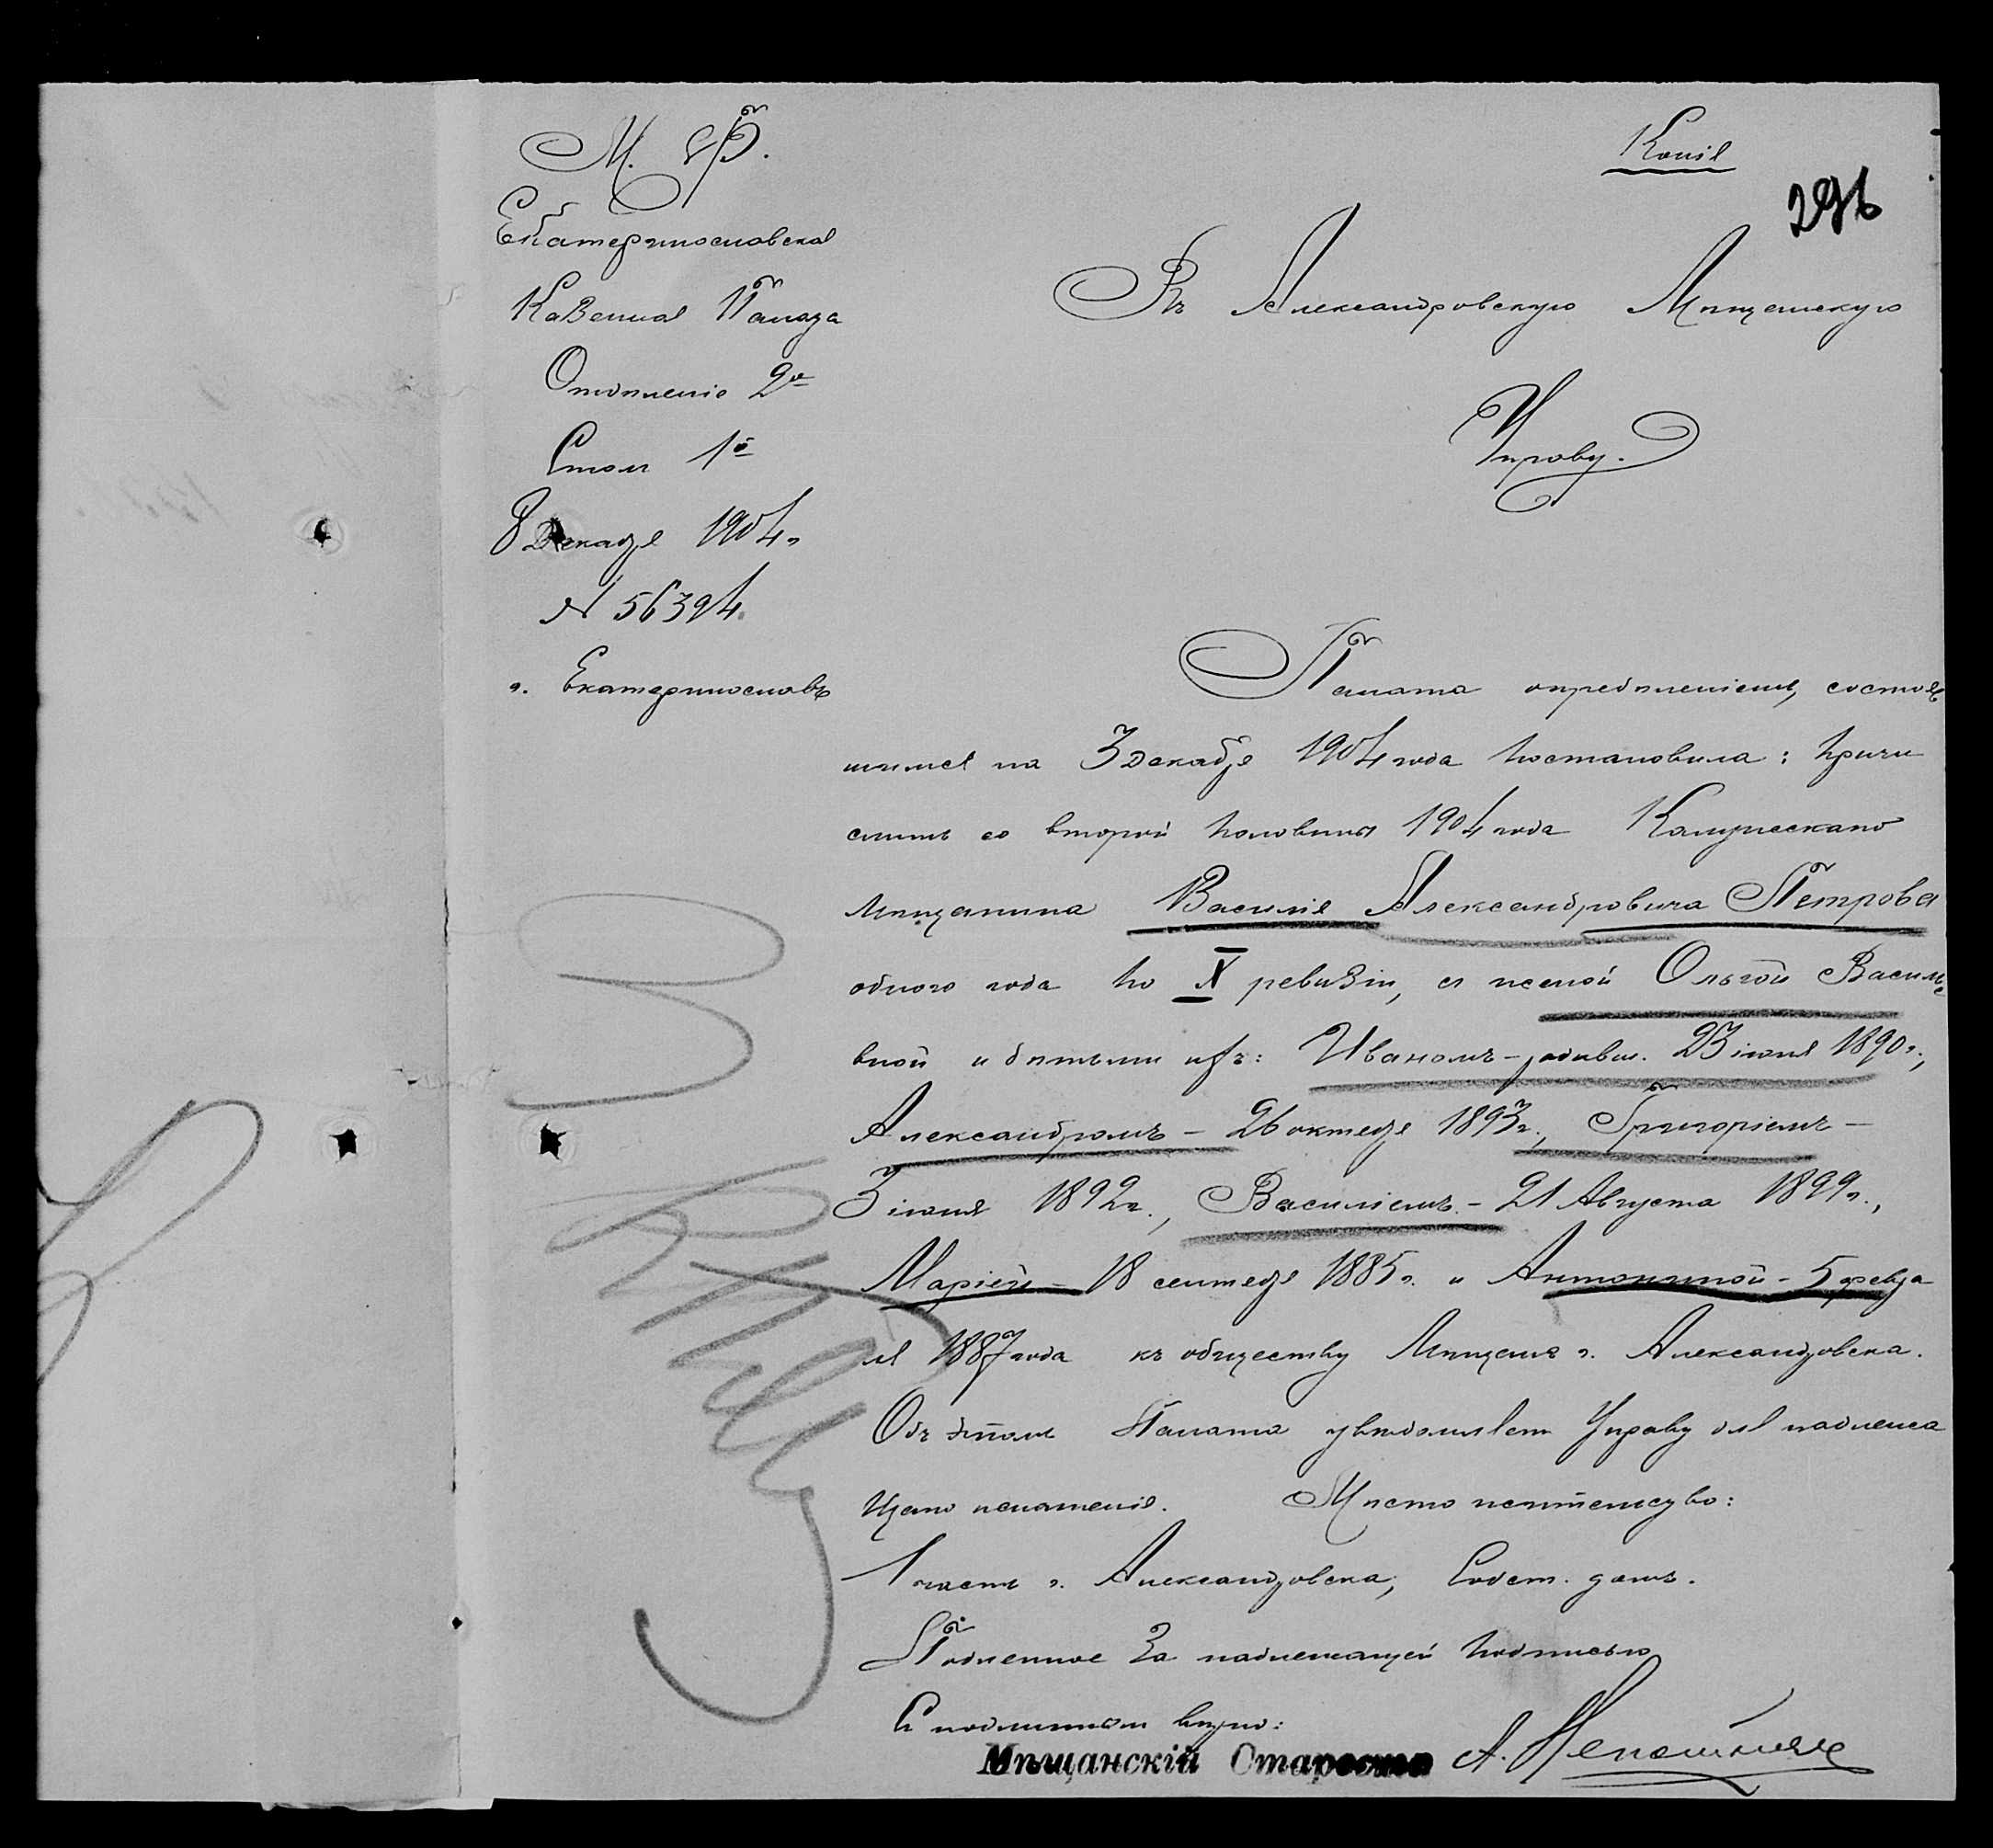 Копія
296
М. Ф.
Екатеринославская
Казенная Палата
Отдѣленіе 2ое
Столъ 1й
8 Декабря 1904 г.
№ 56394.
г. Екатеринославъ
Въ Александровскую Мѣщанскую
Управу.
Палата опредѣленіемъ, состояв
шимся на 3 декабря 1904 года постановила: причи
слить со второй половины 1904 года Калужскаго
мѣщанина Василія Александровича Петрова
одного года по X ревизіи, съ женой Ольгой Василье
вной и дѣтьми ихъ: Иваномъ - родивш. 23 іюня 1890 г.,
Александромъ - 26 октября 1893 г., Григоріемъ -
3 іюня 1892 г., Василіемъ - 21 Августа 1899 г.,
Маріей - 18 сентября 1885 г. и Антониной - 5 февра
ля 1887 года къ обществу мѣщанъ г. Александровска.
Объ этомъ Палата увѣдомляетъ Управу для надлежа
щаго исполненія. Мѣсто жительство:
1 часть г. Александровска, Собст. домъ.
Подлинное за надлежащей подписью
Съ подлиннымъ вѣрно:
Мѣщанскій Староста А.